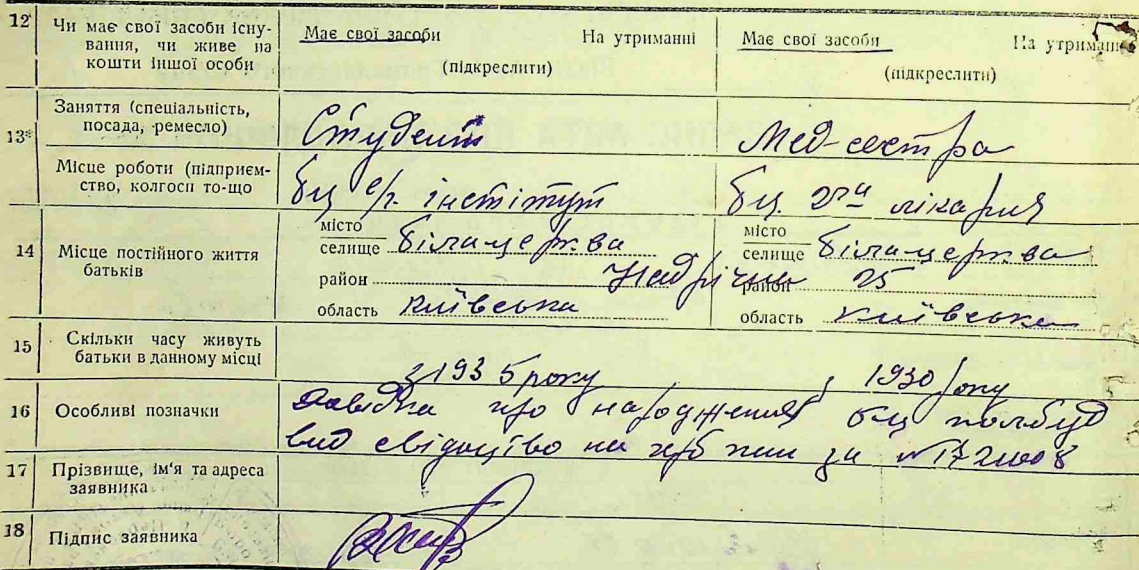 12 Чи має свої засоби існу-
вання, чи живе на
кошти іншої особи
Має свої засоби На утриманні
(підкреслити)
Має свої засоби На утриманні
(підкреслити)
13* Заняття (спеціальність,
посада, ремесло)
Студент
Мед-сестра
Місце роботи (підприєм-
ство, колгосп то-що
бц с/г. інститут
бц. 2га лікарня
14 Місце постійного життя
батьків
місто
селище Біла-церква
район
область Київська
місто
селище Біла-церква
Надрічна 25
район
область Київська
15 Скільки часу живуть
батьки в данному місці
з 1935 року
з 1930 року
16 Особливі позначки
Довідка про народження бц
вид свідоцтво на за №
17 Прізвище, ім'я та адреса
заявника
18 Підпис заявника